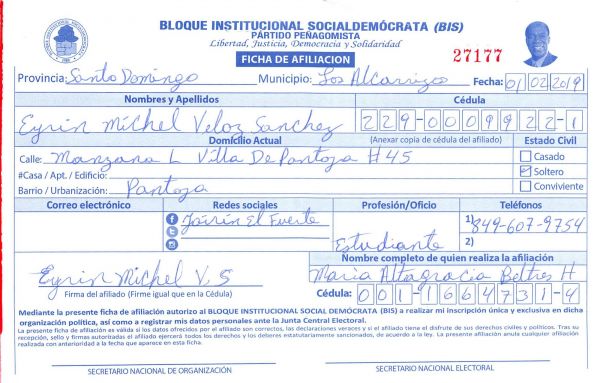 BLOQUE INSTITUCIONAL SOCIALDEMÓCRATA (BIS)
PARTIDO PEÑAGOMISTA
Libertad, Justicia, Democracia y Solidaridad
FICHA DE AFILIACION
27177
Provincia: Santo Domingo Municipio: Los Alcarrizos Fecha: 01/02/2019
Nombres y Apellidos Cédula
Eyrin Michel Veloz Sanchez 229-0009922-1
Domicilio Actual (Anexar copia de cédula del afiliado) Estado Civil
Calle: Manzana L Villa De Pantoja #45 Casado
#Casa / Apt. / Edificio: Soltero
Barrio / Urbanización: Pantoja Conviviente
Correo electrónico Redes sociales Profesión/Oficio Teléfonos
Jairin El Fuerte 1) 849-607-9754
Estudiante 2)
Nombre completo de quien realiza la afiliación
Eyrin Michel V. S Maria Altagracia Beltres H
Firma del afiliado (Firme igual que en la Cédula) Cédula: 001-1664731-4
Mediante la presente ficha de afiliación autorizo al BLOQUE INSTITUCIONAL SOCIAL DEMÓCRATA (BIS) a realizar mi inscripción única y exclusiva en dicha
organización politica, así como a registrar mis datos personales ante la Junta Central Electoral.
La presente ficha de afiliación es válida si los datos ofrecidos por el afiliado son correctos, las declaraciones veraces y si el afiliado tiene el disfrute de sus derechos civiles y políticos. Tras su
recepción, sello y firmas autorizadas el afiliado ejercerá todos los derechos y los deberes estatutariamente sancionados, de acuerdo a la ley. La presente afiliación anula cualquier afiliación
realizada con anterioridad a la fecha que aparece en esta ficha.
SECRETARIO NACIONAL DE ORGANIZACIÓN SECRETARIO NACIONAL ELECTORAL